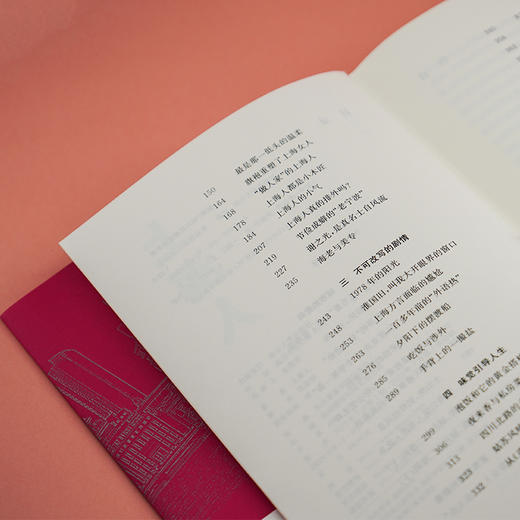 150 最是那一低头的温柔
164 旗袍重塑了上海女人
168 “做人家”的上海人
178 上海人都是小木匠
184 上海人的小气
207 上海人真的排外吗?
219 节俭成癖的“老宁波”
227 谢之光,是真名士自风流
235 海老与美专
三 不可改写的剧情
243 1978年的阳光
248 淮国旧,叫我大开眼界的窗口
253 上海方言面临的尴尬
263 一百多年前的“外语热”
276 夕阳下的摆渡船
285 吃饭与涉外
289 手背上的一撮盐
四 味觉引导人生
299 泡饭和它的黄金搭
306 夜来香与私房菜
313 四川北路的
323 姑苏风
332 从